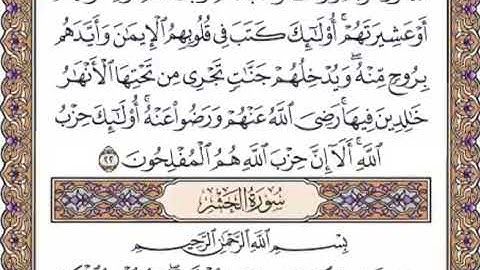 أَوْ عَشِيرَتَهُمْ ۚ أُولَٰئِكَ كَتَبَ فِي قُلُوبِهِمُ الْإِيمَانَ وَأَيَّدَهُم
بِرُوحٍ مِّنْهُ ۖ وَيُدْخِلُهُمْ جَنَّاتٍ تَجْرِي مِن تَحْتِهَا الْأَنْهَارُ
خَالِدِينَ فِيهَا ۚ رَضِيَ اللَّهُ عَنْهُمْ وَرَضُوا عَنْهُ ۚ أُولَٰئِكَ حِزْبُ
اللَّهِ ۚ أَلَا إِنَّ حِزْبَ اللَّهِ هُمُ الْمُفْلِحُونَ ٢٢
سُورَةُ الْحَشْرِ
بِسْمِ اللَّهِ الرَّحْمَٰنِ الرَّحِيمِ